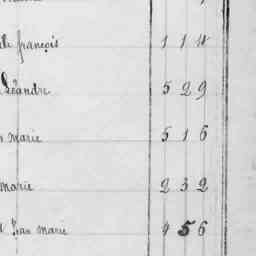 françois 1 1 4
Léandre 5 2 9
marie 5 1 6
marie 2 3 2
Jean marie 9 5 6